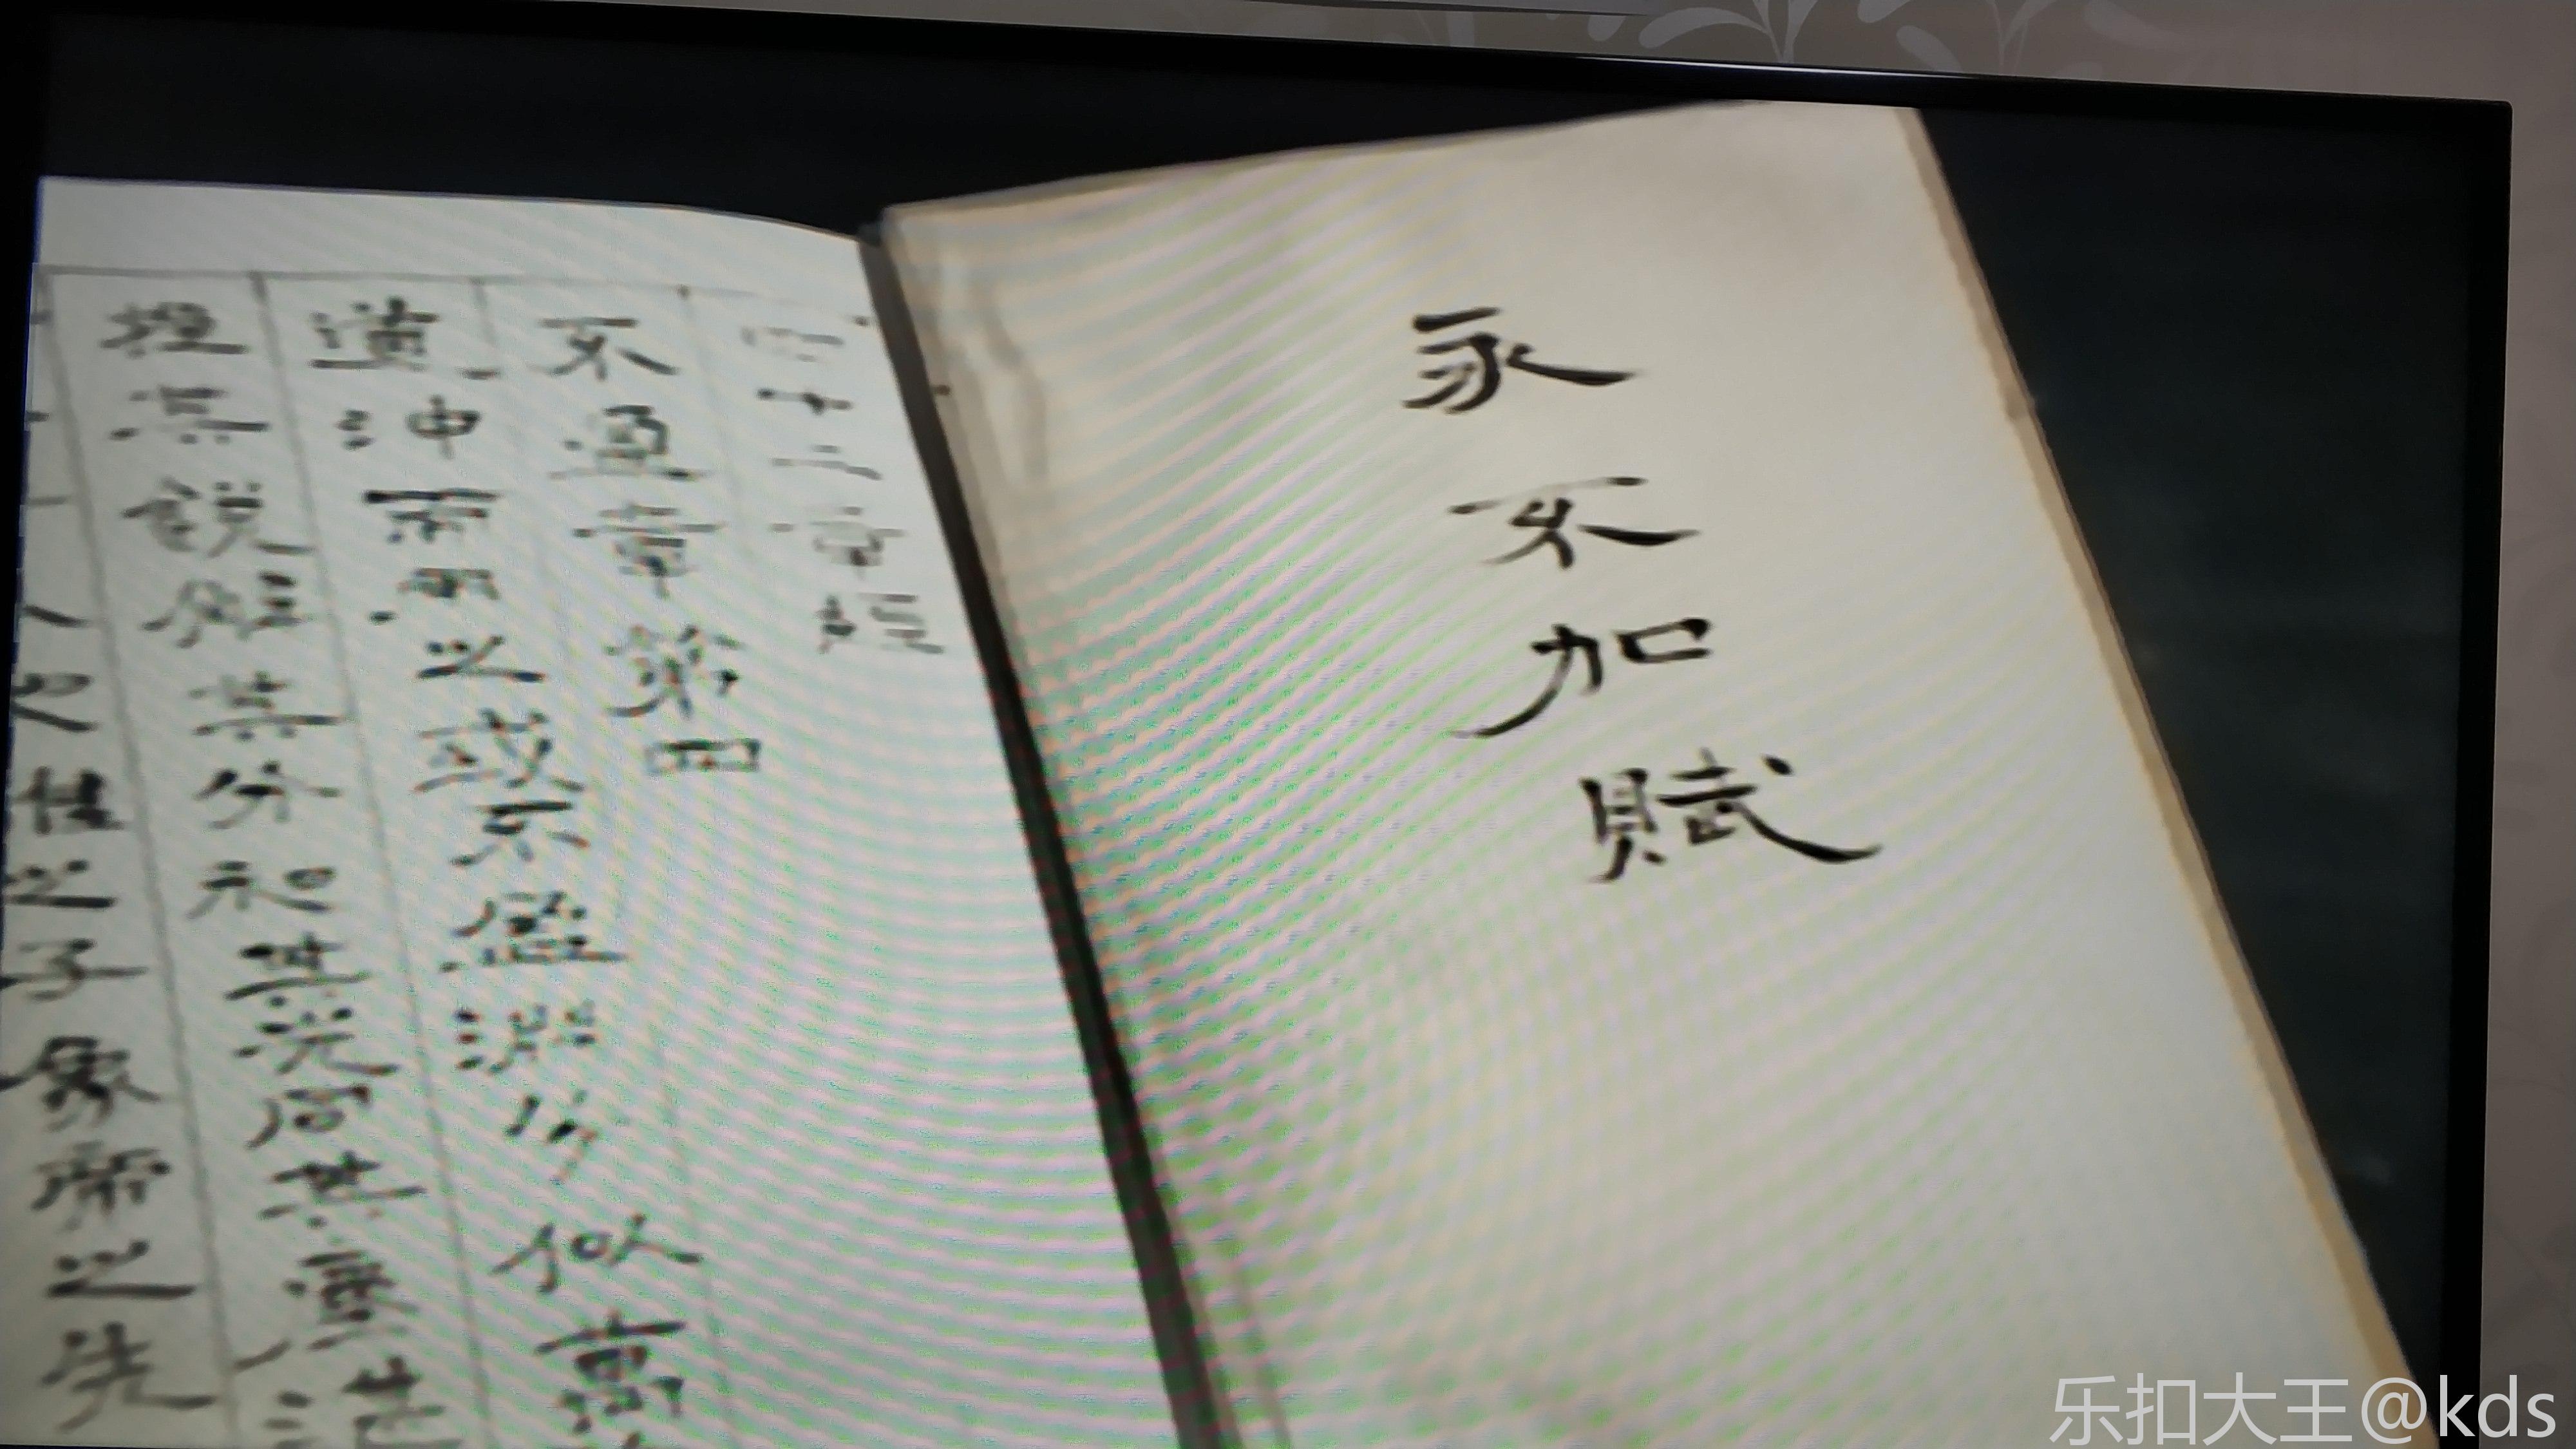 永不加賦
四十二章經
不盈章第四
道沖而用之或不盈淵兮似萬
挫其銳解其分和其光同其塵湛
之子象帝之先
乐扣大王@kds